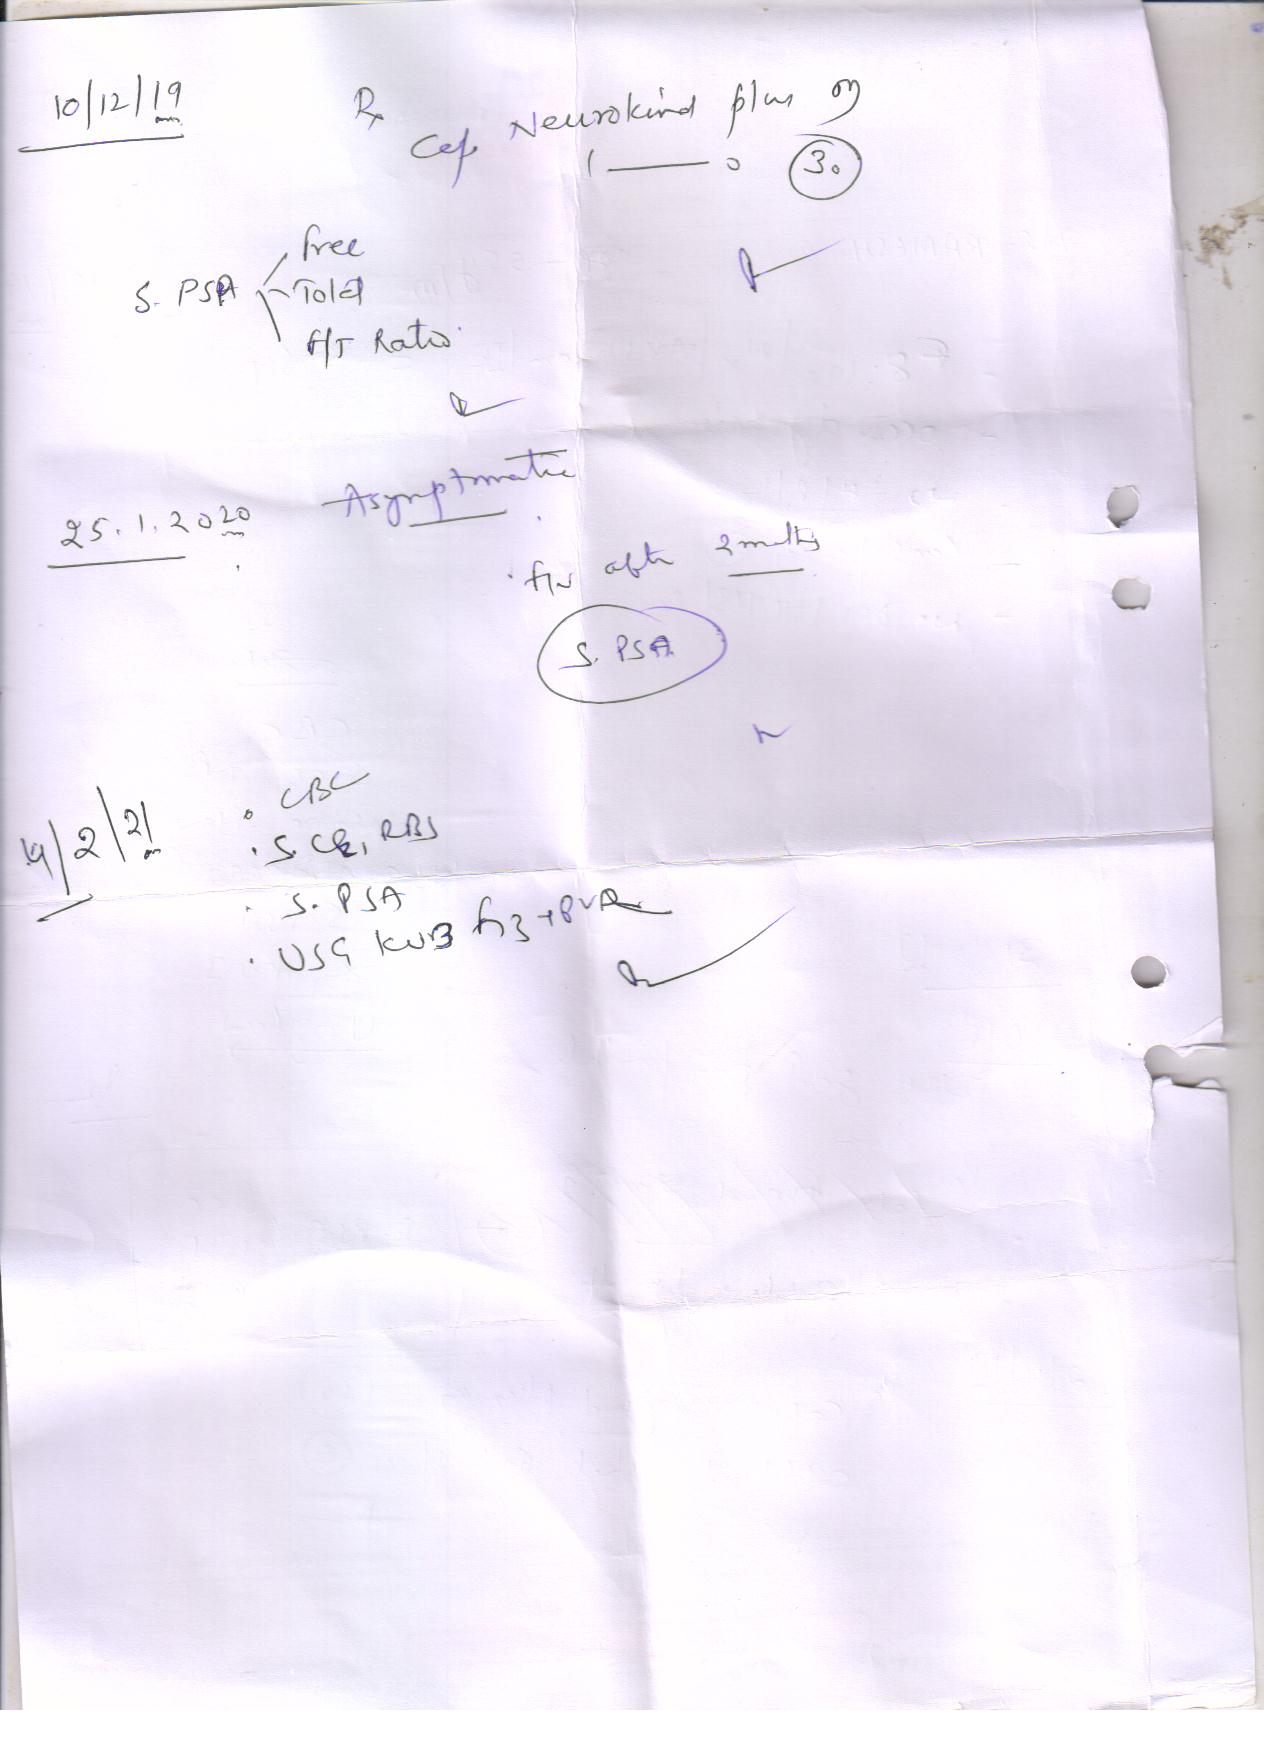 10/12/19
Rx
Cap Neurokind plus
1 —— 0 (30)
S. PSA
Free
Total
F/T Ratio
25.1.2020
Asymptomatic
after 2 months
S. PSA
4/2/21
CBC
S. CR, RBS
S. PSA
USG KUB + PVR